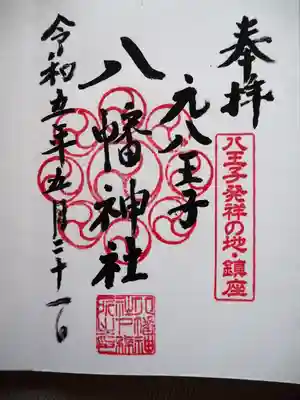 奉拝
八王子発祥の地・鎮座
元八王子
八幡神社
令和五年五月二十一日